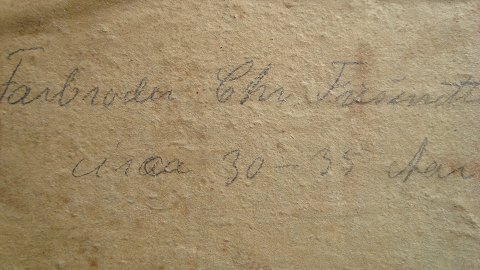 Farbroder Chr Træindt
circa 30-35 Aar